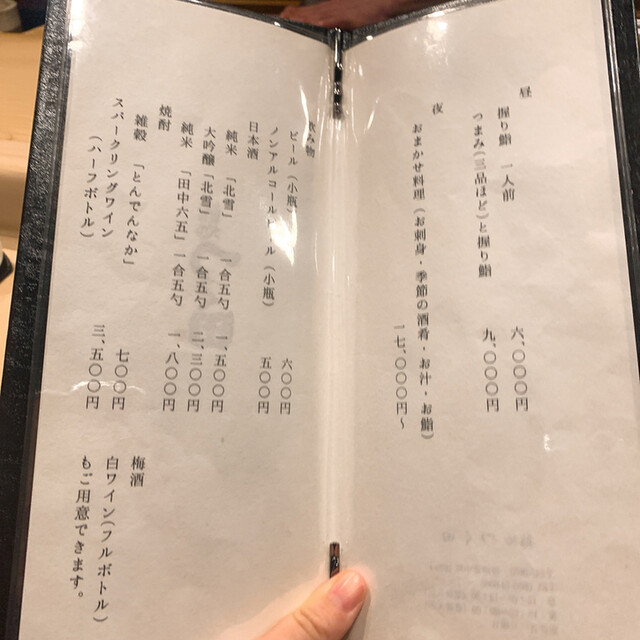 昼
握り鮨　一人前　六、〇〇〇円
つまみ（三品ほど）と握り鮨　九、〇〇〇円
夜
おまかせ料理（お刺身・季節の酒肴・お汁・お鮨）
一七、〇〇〇円～
飲み物
ビール（小瓶）　六〇〇円
ノンアルコールビール（小瓶）　五〇〇円
日本酒
純米　「北雪」　一合五勺　一、五〇〇円
大吟醸「北雪」　一合五勺　二、三〇〇円
純米　「田中六五」一合五勺　一、八〇〇円
焼酎
雑穀　「とんでんなか」　七〇〇円
スパークリングワイン
（ハーフボトル）　三、五〇〇円
梅酒
白ワイン（フルボトル）
もご用意できます。